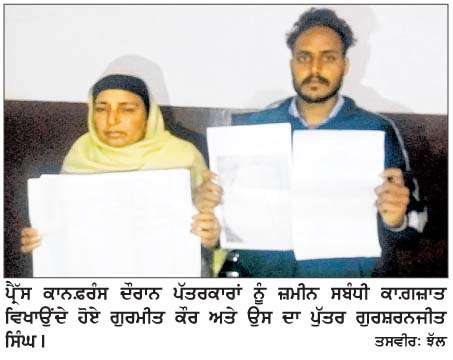 ਪ੍ਰੈੱਸ ਕਾਨ.ਫਰੰਸ ਦੌਰਾਨ ਪੱਤਰਕਾਰਾਂ ਨੂੰ ਜ਼ਮੀਨ ਸਬੰਧੀ ਕਾ.ਗਜ਼ਾਤ
ਵਿਖਾਉਂਦੇ ਹੋਏ ਗੁਰਮੀਤ ਕੌਰ ਅਤੇ ਉਸ ਦਾ ਪੁੱਤਰ ਗੁਰਸ਼ਰਨਜੀਤ
ਸਿੰਘ।
ਤਸਵੀਰ: ਝੱਲ